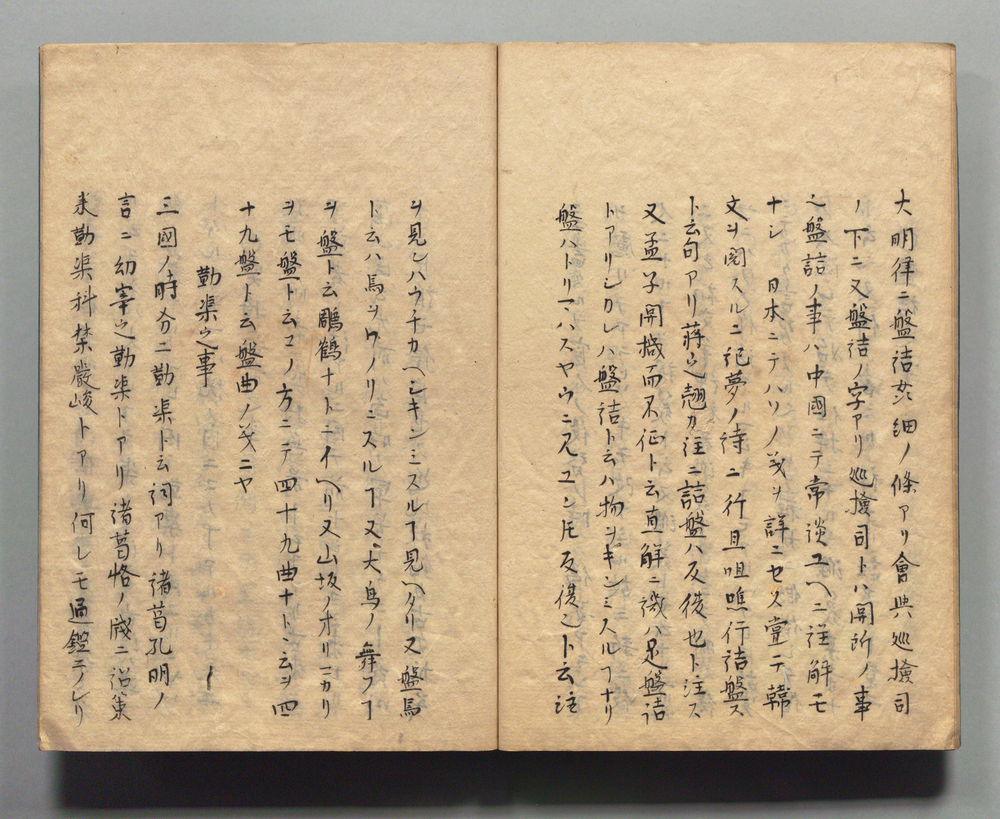 大明律ニ盤詰奸細ノ條アリ會典巡撿司
ノ下ニ又盤詰ノ字アリ巡撿司トハ関所ノ事
也盤詰ノ事ハ中國ニテ常談ユヘニ注解モ
ナシ 日本ニテハソノ義ヲ詳ニセス嘗テ韓
文ヲ閲スルニ記夢ノ詩ニ行且咀噍行詰盤
ト云句アリ蒋之翹カ注ニ詰盤ハ反復也ト注ス
又孟子関譏而不征ト云直解ニ譏ハ是盤詰
トアリシカレハ盤詰ト云ハ物ヲギンミスルヿナリ
盤ハトリマハスヤウニ見ユレ𪜈反復シト云注
ヲ見レハウチカヘシギンミスルヿ見ヘタリ又盤馬
ト云ハ馬ヲワノリニスルヿ又大鳥ノ舞フヿ
ヲ盤ト云鵰鶴ナトニイヘリ又山坂ノオリマカリ
ヲモ盤ト云コノ方ニテ四十九曲ナト丶云ヲ四
十九盤ト云盤曲ノ義ニヤ
勤渠之事
三國ノ時分ニ勤渠ト云詞アリ諸葛孔明ノ
言ニ幼宰之勤渠トアリ諸葛恪ノ
勤渠科禁嚴峻トアリ何レモ通鑑ニノレリ